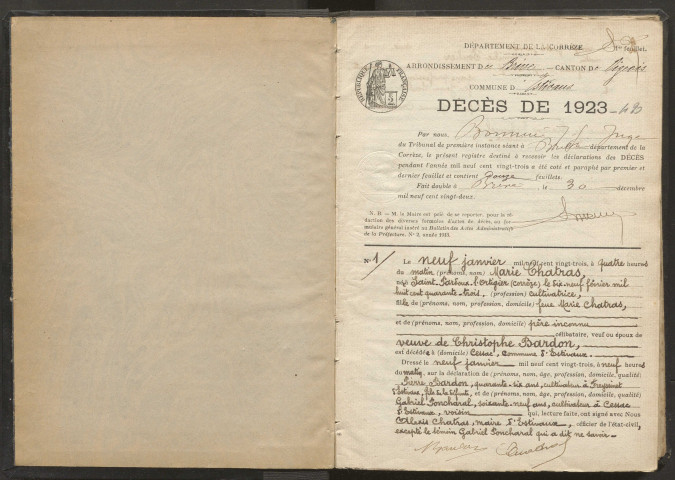 DÉPARTEMENT DE LA CORRÈZE feuillet.
ARRONDISSEMENT DE Brive CANTON DE Vigeois
COMMUNE D'Estivaux
RÉPUBLIQUE FRANÇAISE
DÉCÈS DE 1923
Par nous, Juge
du Tribunal de première instance séant à Brive département de la
Corrèze, le présent registre destiné à recevoir les déclarations des DÉCÈS
pendant l'année mil neuf cent vingt-trois a été coté et paraphé par premier et
dernier feuillet et contient douze feuillets.
Fait double à Brive, le 30 décembre
mil neuf cent vingt-deux.
N. B. — M. le Maire est prié de se reporter, pour la ré-
daction des diverses formules d'actes de décès, au for-
mulaire général inséré au Bulletin des Actes Administratifs
de la Préfecture, N° 2, année 1923.
N° 1 Le neuf janvier mil neuf cent vingt-trois, à quatre heures
du matin (prénoms, nom) Marie Chatras,
née Saint-Pardoux-l'Ortigier (Corrèze) le dix-neuf février mil
huit cent quarante-trois, (profession) cultivatrice,
fille de (prénoms, nom, profession, domicile) feue Marie Chatras,
et de (prénoms, nom, profession, domicile) père inconnu
célibataire, veuf ou époux de
veuve de Christophe Bardon,
est décédée à (domicile) Cessac, commune d'Estivaux.
Dressé le neuf janvier mil neuf cent vingt-trois, à neuf heures
du matin, sur la déclaration de (prénoms, nom, âge, profession, domicile, qualité)
Pierre Bardon, quarante-six ans, cultivateur à Freyssinet
d'Estivaux, fils de la défunte, et de (prénoms, nom, âge, profession, domicile, qualité)
Gabriel Poncharal, soixante-neuf ans, cultivateur à Cessac
d'Estivaux, voisin qui, lecture faite, ont signé avec Nous
Alexis Chatras, maire d'Estivaux, officier de l'état-civil,
excepté le témoin Gabriel Poncharal qui a dit ne savoir.